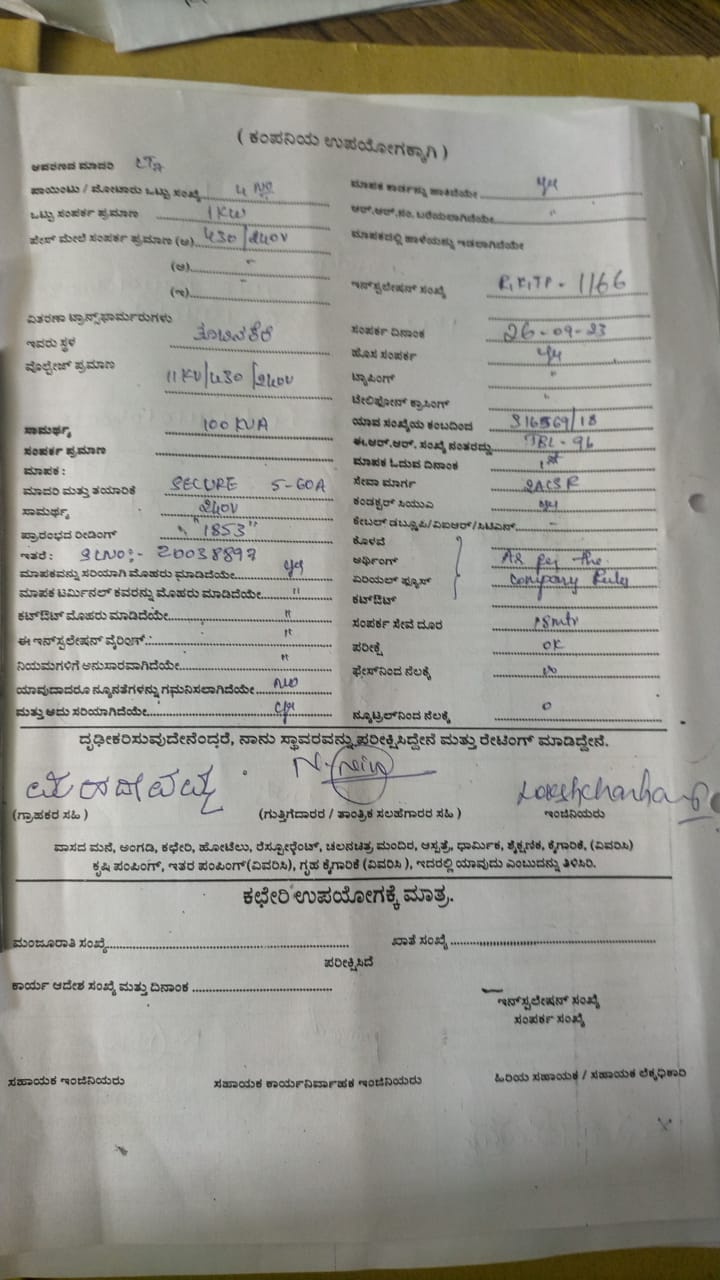 ( ಕಂಪನಿಯ ಉಪಯೋಗಕ್ಕಾಗಿ )
ಆವರಣದ ಮಾದರಿ
ಪಾಯಿಂಟು / ಮೋಟಾರು ಒಟ್ಟು ಸಂಖ್ಯೆ 4 No
ಒಟ್ಟು ಸಂಪರ್ಕ ಪ್ರಮಾಣ 1KW
ಪೇಸ್ ಮೇಲೆ ಸಂಪರ್ಕ ಪ್ರಮಾಣ (ಅ) 430/240V
(ಆ) -
(ಇ) -
ವಿತರಣಾ ಟ್ರಾನ್ಸ್‌ಫಾರ್ಮರುಗಳು
ಇವರು ಸ್ಥಳ
ವೊಲ್ಟೇಜ್ ಪ್ರಮಾಣ 11KV/430/240V
ಸಾಮರ್ಥ್ಯ 100 KVA
ಸಂಪರ್ಕ ಪ್ರಮಾಣ
ಮಾಪಕ :
ಮಾದರಿ ಮತ್ತು ತಯಾರಿಕೆ SECURE 5-60A
ಸಾಮರ್ಥ್ಯ 240V
ಪ್ರಾರಂಭದ ರೀಡಿಂಗ್ "1853"
ಇತರೆ : SLNO:- 20038897
ಮಾಪಕವನ್ನು ಸರಿಯಾಗಿ ಮೊಹರು ಮಾಡಿದೆಯೇ yes
ಮಾಪಕ ಟರ್ಮಿನಲ್ ಕವರನ್ನು ಮೊಹರು ಮಾಡಿದೆಯೇ "
ಕಟ್‌ಔಟ್ ಮೊಹರು ಮಾಡಿದೆಯೇ "
ಈ ಇನ್‌ಸ್ಟಲೇಷನ್ ವೈರಿಂಗ್ : "
ನಿಯಮಗಳಿಗೆ ಅನುಸಾರವಾಗಿದೆಯೇ "
ಯಾವುದಾದರೂ ನ್ಯೂನತೆಗಳನ್ನು ಗಮನಿಸಲಾಗಿದೆಯೇ NO
ಮತ್ತು ಅದು ಸರಿಯಾಗಿದೆಯೇ
ಮಾಪಕ ಕಾರ್ಡನ್ನು ಹಾಕಿದೆಯೇ yes
ಆರ್.ಆರ್.ನಂ. ಬರೆಯಲಾಗಿದೆಯೇ "
ಮಾಪಕದಲ್ಲಿ ಹಾಳೆಯನ್ನು ಇಡಲಾಗಿದೆಯೇ
ಇನ್‌ಸ್ಟಲೇಷನ್ ಸಂಖ್ಯೆ 1166
ಸಂಪರ್ಕ ದಿನಾಂಕ 26-09-23
ಹೊಸ ಸಂಪರ್ಕ yes
ಟ್ಯಾಪಿಂಗ್ "
ಟೆಲಿಫೋನ್ ಕ್ರಾಸಿಂಗ್ "
ಯಾವ ಸಂಖ್ಯೆಯ ಕಂಬದಿಂದ 316569/18
ಈ.ಆರ್.ಆರ್. ಸಂಖ್ಯೆ ನಂತರದ್ದು TBL-96
ಮಾಪಕ ಓದುವ ದಿನಾಂಕ 1st
ಸೇವಾ ಮಾರ್ಗ 2ACSR
ಕಂಡಕ್ಟರ್ ಸಿಯುಎ
ಕೇಬಲ್ ಡಬ್ಲೂಪಿ/ವಿಐಆರ್/ಸಿಟಿಎಸ್ -
ಕೊಳವೆ
ಅರ್ಥಿಂಗ್ As per the
ಏರಿಯಲ್ ಫ್ಯೂಸ್ company Rules
ಕಟ್‌ಔಟ್
ಸಂಪರ್ಕ ಸೇವೆ ದೂರ 18mtr
ಪರೀಕ್ಷೆ OK
ಫೇಸ್‌ನಿಂದ ನೆಲಕ್ಕೆ
ನ್ಯೂಟ್ರಲ್‌ನಿಂದ ನೆಲಕ್ಕೆ 0
ದೃಢೀಕರಿಸುವುದೇನೆಂದರೆ, ನಾನು ಸ್ಥಾವರವನ್ನು ಪರೀಕ್ಷಿಸಿದ್ದೇನೆ ಮತ್ತು ರೇಟಿಂಗ್ ಮಾಡಿದ್ದೇನೆ.
(ಗ್ರಾಹಕರ ಸಹಿ )
(ಗುತ್ತಿಗೆದಾರರ / ತಾಂತ್ರಿಕ ಸಲಹೆಗಾರರ ಸಹಿ )
ಇಂಜಿನಿಯರು
ವಾಸದ ಮನೆ, ಅಂಗಡಿ, ಕಛೇರಿ, ಹೋಟೆಲು, ರೆಸ್ಟೋರೆಂಟ್, ಚಲನಚಿತ್ರ ಮಂದಿರ, ಆಸ್ಪತ್ರೆ, ಧಾರ್ಮಿಕ, ಶೈಕ್ಷಣಿಕ, ಕೈಗಾರಿಕೆ, (ವಿವರಿಸಿ)
ಕೃಷಿ ಪಂಪಿಂಗ್, ಇತರ ಪಂಪಿಂಗ್(ವಿವರಿಸಿ), ಗೃಹ ಕೈಗಾರಿಕೆ (ವಿವರಿಸಿ ), ಇದರಲ್ಲಿ ಯಾವುದು ಎಂಬುದನ್ನು ತಿಳಿಸಿರಿ.
ಕಛೇರಿ ಉಪಯೋಗಕ್ಕೆ ಮಾತ್ರ.
ಮಂಜೂರಾತಿ ಸಂಖ್ಯೆ
ಖಾತೆ ಸಂಖ್ಯೆ
ಪರೀಕ್ಷಿಸಿದೆ
ಕಾರ್ಯ ಆದೇಶ ಸಂಖ್ಯೆ ಮತ್ತು ದಿನಾಂಕ
ಇನ್‌ಸ್ಟಲೇಷನ್ ಸಂಖ್ಯೆ
ಸಂಪರ್ಕ ಸಂಖ್ಯೆ
ಸಹಾಯಕ ಇಂಜಿನಿಯರು
ಸಹಾಯಕ ಕಾರ್ಯನಿರ್ವಾಹಕ ಇಂಜಿನಿಯರು
ಹಿರಿಯ ಸಹಾಯಕ / ಸಹಾಯಕ ಲೆಕ್ಕಧಿಕಾರಿ